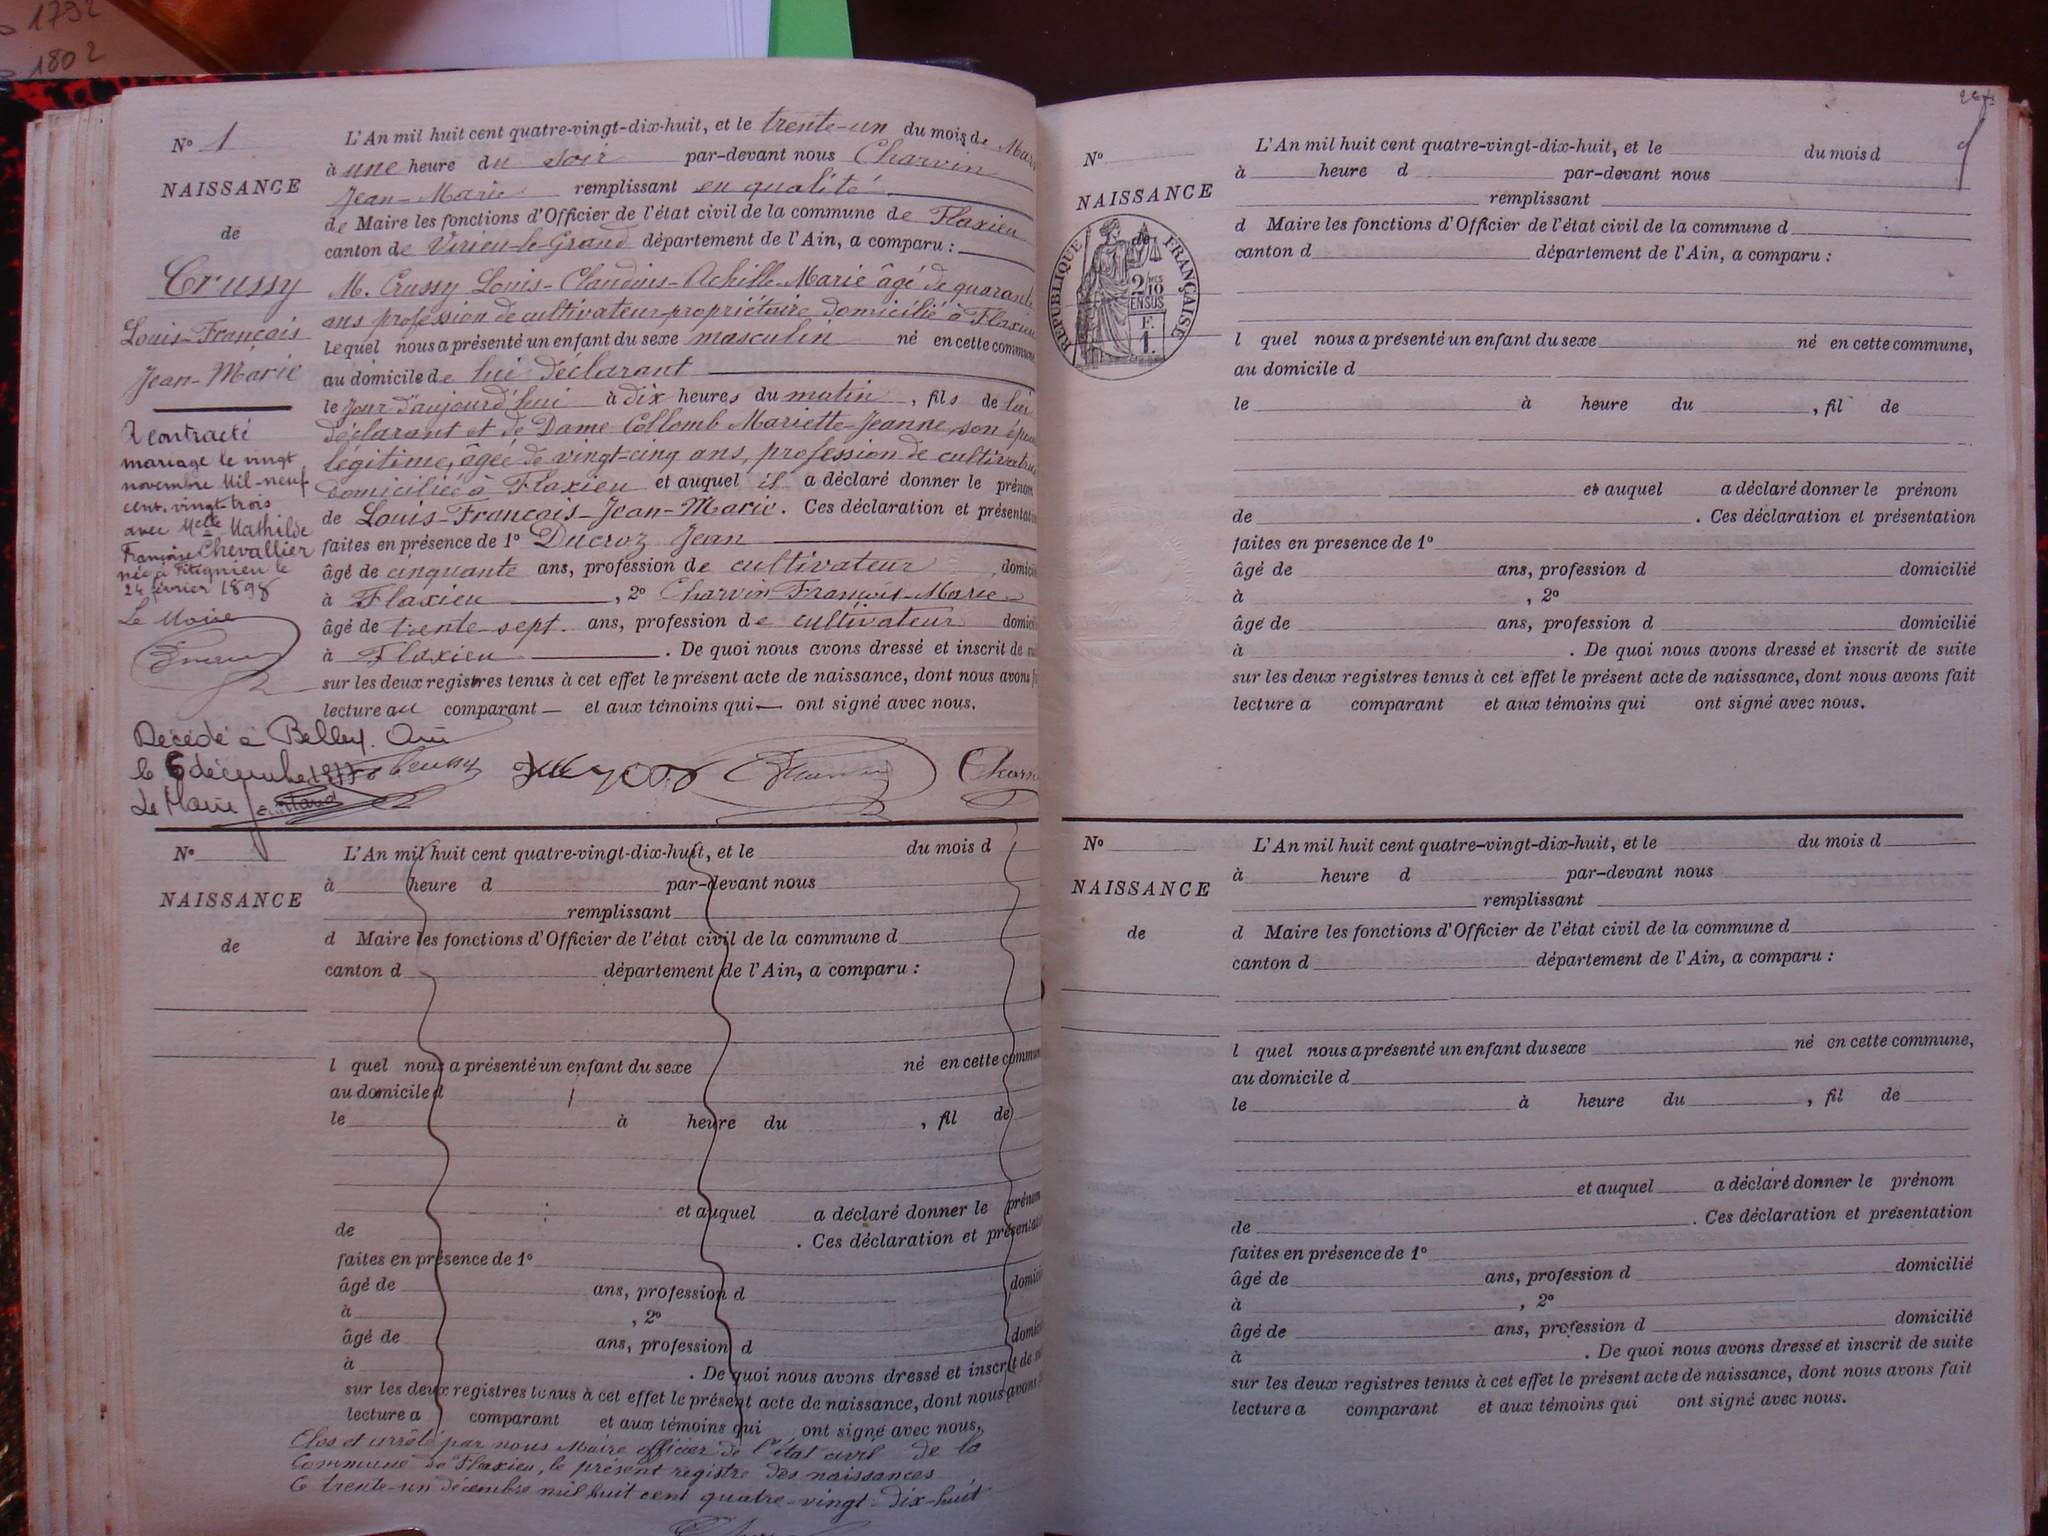 1792
1802
N° 1
NAISSANCE
de
Crussy
Louis-François
Jean-Marie
A contracté
mariage le vingt
novembre Mil-neuf
cent-vingt-trois
avec Melle Mathilde
Françoise Chevallier
née à Pitegnieu le
24 février 1898
Le Maire
L'An mil huit cent quatre-vingt-dix-huit, et le trente-un du mois de Mars
à une heure du soir par-devant nous Charvin
Jean-Marie remplissant en qualité
de Maire les fonctions d'Officier de l'état civil de la commune de Flaxieu
canton de Virieu-le-Grand département de l'Ain, a comparu :
M. Crussy Louis-Claudius-Achille-Marie âgé de quarante
ans profession de cultivateur-propriétaire domicilié à Flaxieu
lequel nous a présenté un enfant du sexe masculin né en cette commune
au domicile de lui déclarant
le jour d'aujourd'hui à dix heures du matin, fils de lui
déclarant et de Dame Collomb Mariette-Jeanne, son épouse
légitime, âgée de vingt-cinq ans, profession de cultivatrice
domiciliée à Flaxieu et auquel il a déclaré donner le prénom
de Louis-François-Jean-Marie. Ces déclaration et présentation
faites en présence de 1° Ducroz Jean
âgé de cinquante ans, profession de cultivateur domici
à Flaxieu, 2° Charvin François-Marie
âgé de trente-sept ans, profession de cultivateur domici
à Flaxieu. De quoi nous avons dressé et inscrit de
sur les deux registres tenus à cet effet le présent acte de naissance, dont nous avons
lecture au comparant et aux témoins qui ont signé avec nous.
Décédé à Belley. Ain
le 6 décembre 1977
Le Maire
Crussy
N°
NAISSANCE
de
L'An mil huit cent quatre-vingt-dix-huit, et le du mois d
à heure d par-devant nous
remplissant
d Maire les fonctions d'Officier de l'état civil de la commune d
canton d département de l'Ain, a comparu :
l quel nous a présenté un enfant du sexe né en cette commune
au domicile d
le à heure du , fil de
et auquel a déclaré donner le prénom
de . Ces déclaration et présentation
faites en présence de 1°
âgé de ans, profession d domici
à , 2°
âgé de ans, profession d domici
à . De quoi nous avons dressé et inscrit de
sur les deux registres tenus à cet effet le présent acte de naissance, dont nous avons
lecture a comparant et aux témoins qui ont signé avec nous.
Clos et arrêté par nous Maire officier de l'état civil de la
Commune de Flaxieu, le présent registre des naissances
le trente-un décembre mil huit cent quatre-vingt-dix-huit
N°
NAISSANCE
de
RÉPUBLIQUE FRANÇAISE
2/10
EN SUS
F.
1.
L'An mil huit cent quatre-vingt-dix-huit, et le du mois d
à heure d par-devant nous
remplissant
d Maire les fonctions d'Officier de l'état civil de la commune d
canton d département de l'Ain, a comparu :
l quel nous a présenté un enfant du sexe né en cette commune,
au domicile d
le à heure du , fil de
et auquel a déclaré donner le prénom
de . Ces déclaration et présentation
faites en presence de 1°
âgé de ans, profession d domicilié
à , 2°
âgé de ans, profession d domicilié
à . De quoi nous avons dressé et inscrit de suite
sur les deux registres tenus à cet effet le présent acte de naissance, dont nous avons fait
lecture a comparant et aux témoins qui ont signé avec nous.
N°
NAISSANCE
de
L'An mil huit cent quatre-vingt-dix-huit, et le du mois d
à heure d par-devant nous
remplissant
d Maire les fonctions d'Officier de l'état civil de la commune d
canton d département de l'Ain, a comparu :
l quel nous a présenté un enfant du sexe né en cette commune,
au domicile d
le à heure du , fil de
et auquel a déclaré donner le prénom
de . Ces déclaration et présentation
faites en présence de 1°
âgé de ans, profession d domicilié
à , 2°
âgé de ans, profession d domicilié
à . De quoi nous avons dressé et inscrit de suite
sur les deux registres tenus à cet effet le présent acte de naissance, dont nous avons fait
lecture a comparant et aux témoins qui ont signé avec nous.